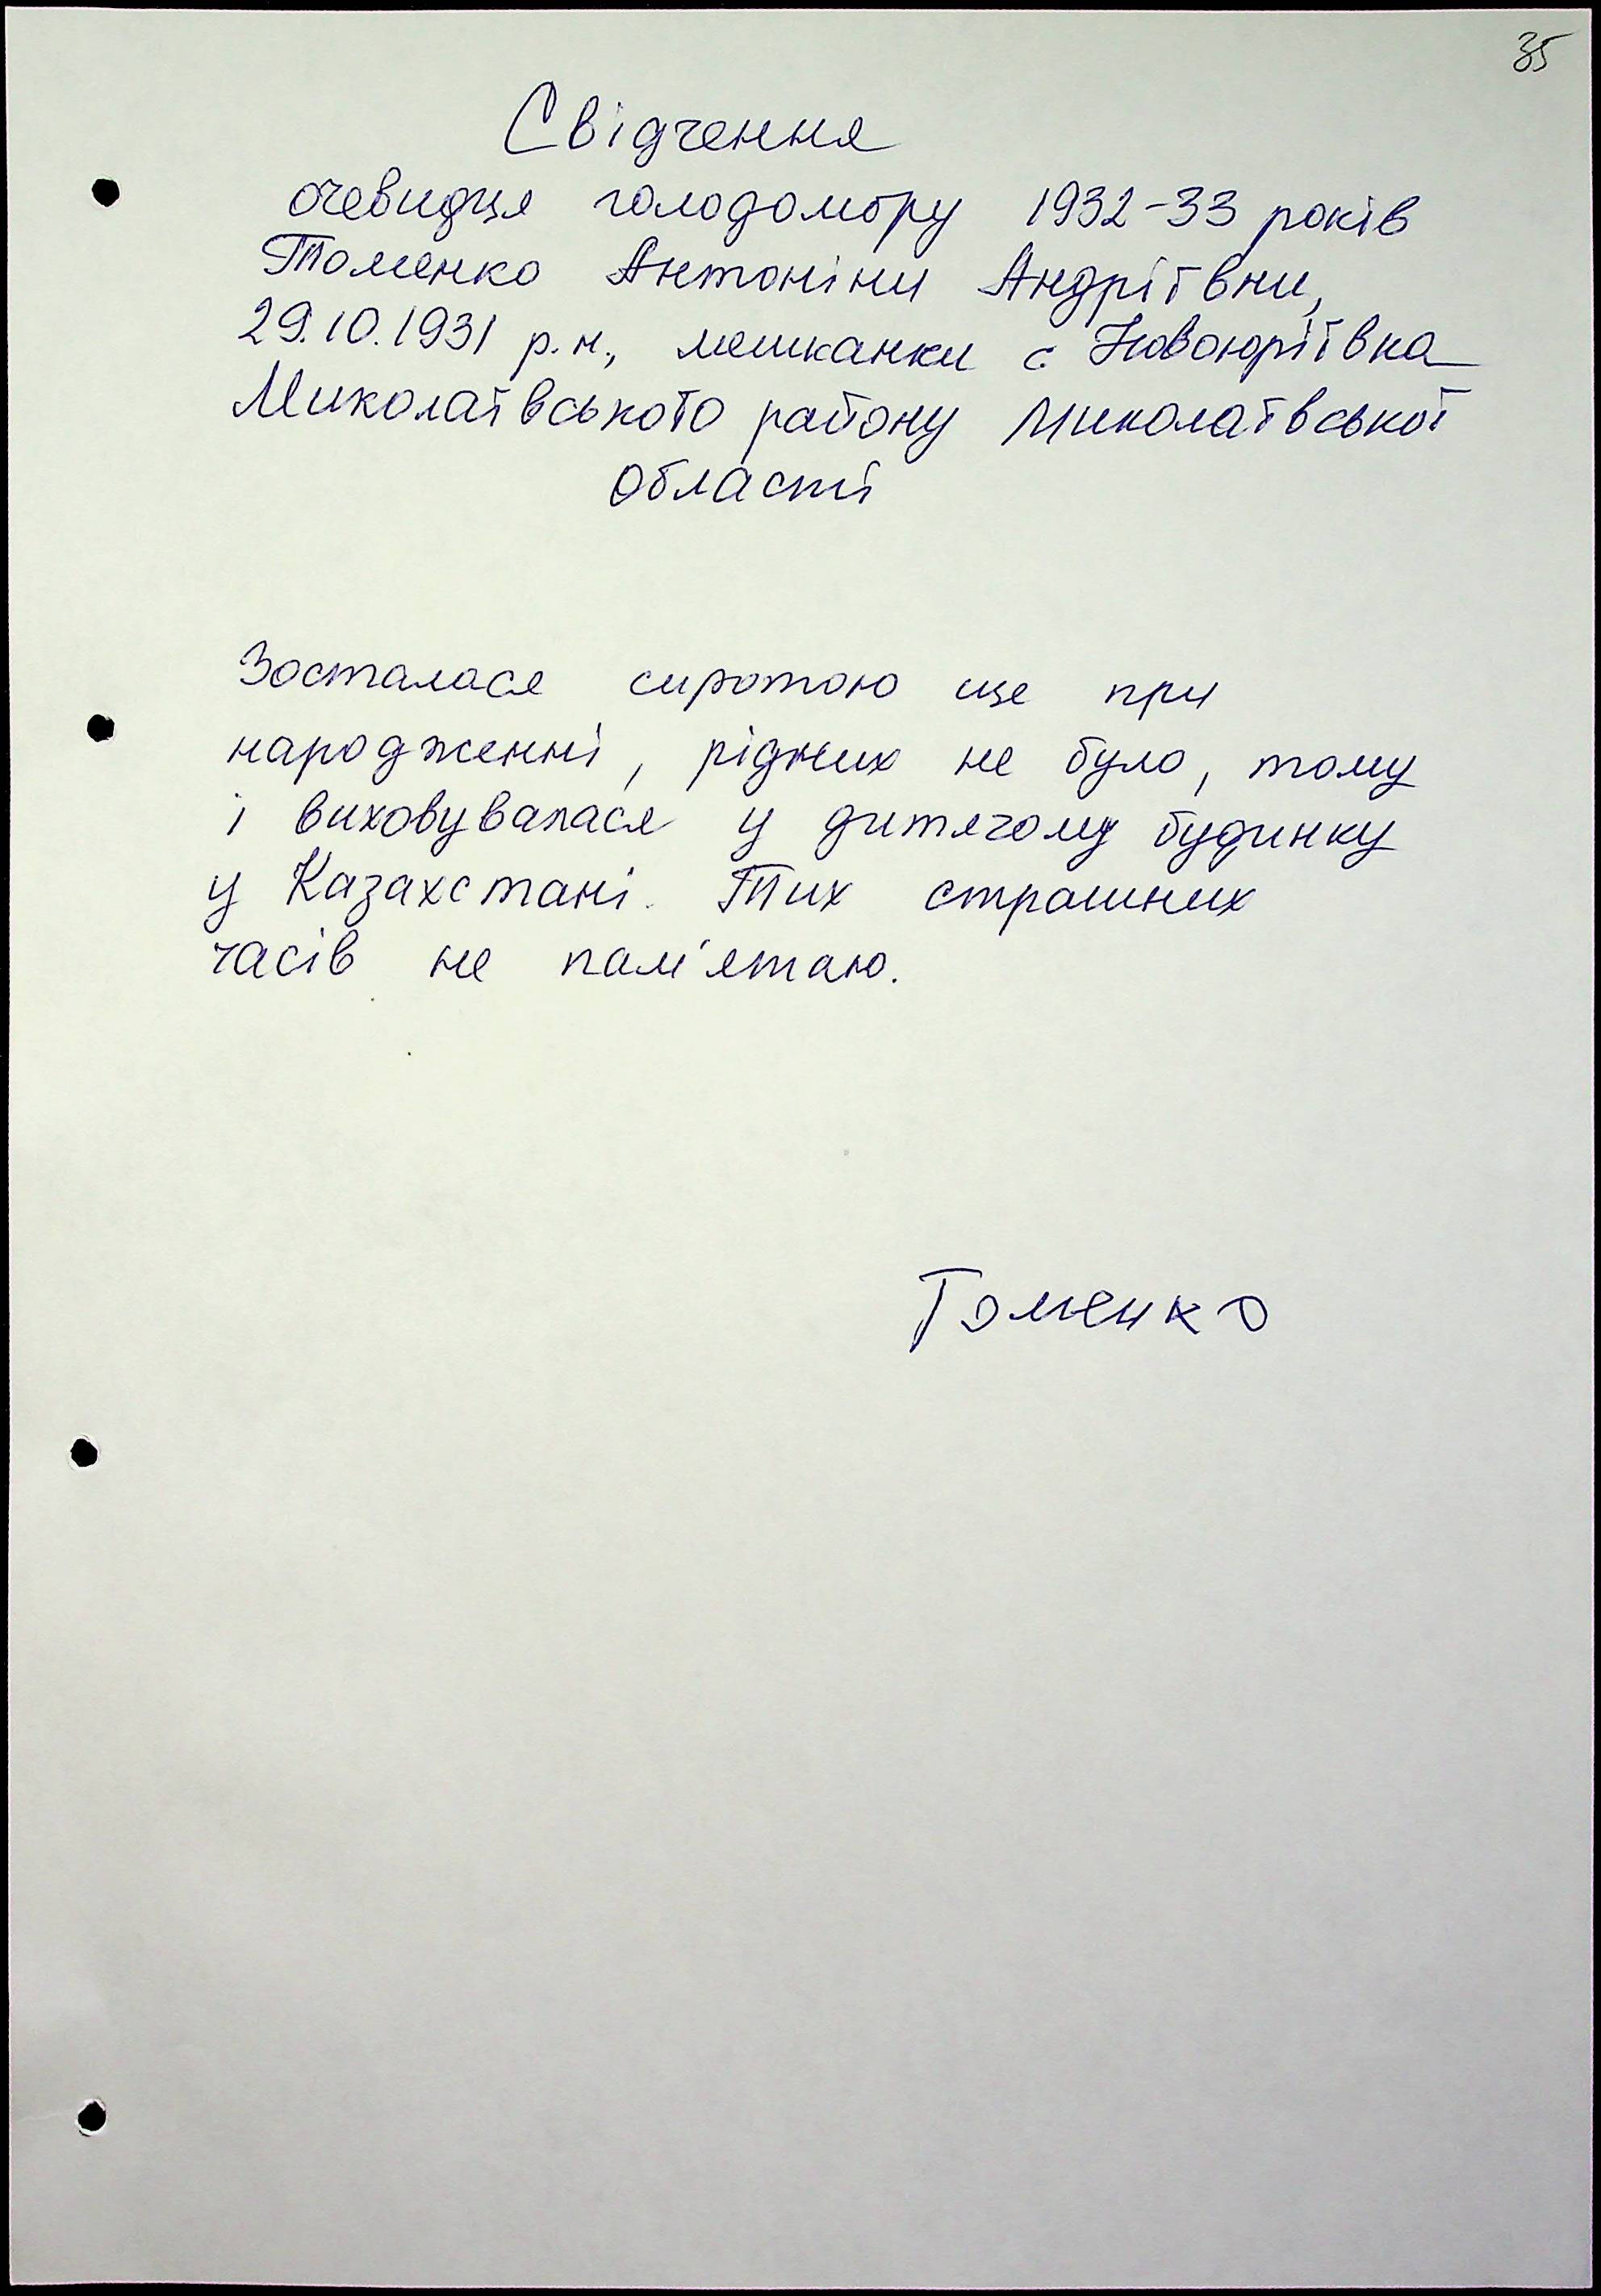 35
Свідчення
очевидця голодомору 1932-33 років
Томенко Антоніни Андріївни,
29.10.1931 р.н., мешканки с. Новоюріївка
Миколаївського району Миколаївської
області
Зосталася сиротою ще при
народженні, рідних не було, тому
і виховувалася у дитячому будинку
у Казахстані. Тих страшних
часів не пам'ятаю.
Томенко